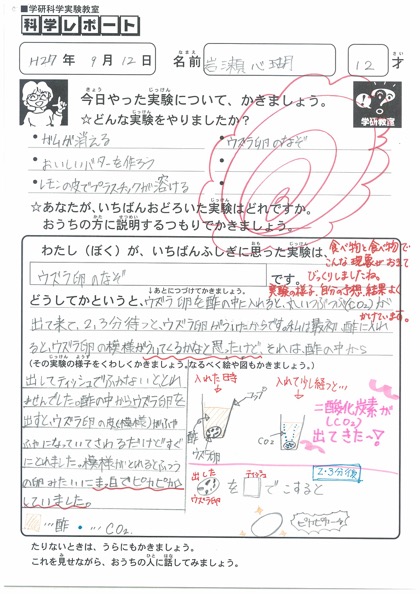 ■学研科学実験教室
科学レポート
H27年 9月12日 名前 岩瀬心瑚 12才
今日やった実験について、かきましょう。
☆どんな実験をやりましたか?
学研教室
・ガムが消える
・ウズラ卵のなぞ
・おいしいバターを作ろう
・レモンの皮でプラスチックが溶ける
☆あなたが、いちばんおどろいた実験はどれですか。
おうちの方に説明するつもりでかきましょう。
わたし(ぼく)が、いちばんふしぎに思った実験は、
ウズラ卵のなぞ です。
食べ物と食べ物で
こんな現象がおきて
びっくりしましたね。
実験の様子、自分の予想、結果よく
かけています。
↓あとにつづけてかきましょう。
どうしてかというと、ウズラ卵を酢の中に入れると、丸いつぶつぶ(CO2)が
出て来て、2,3分待っと、ウズラ卵がういたからです。私は最初、酢に入れ
ると、ウズラ卵の模様がういてくるかなと思ったけど、それは、酢の中から
(その実験の様子をくわしくかきましょう。なるべく絵や図もかきましょう。)
出してティッシュでふかないととれ
ませんでした。酢の中からウズラ卵を
出すと、ウズラ卵の皮(模様)がふや
ふやになっていてさわるだけですぐ
にとれました。模様がとれるとふつう
の卵みたいにま白でピカピカ
していました。
…酢 ・… CO2
入れた時
酢
ウズラ卵
入れて少し経つと…
CO2
二酸化炭素が
(CO2)
出てきた〜!
2・3分後
出した
ウズラ卵
を
ティッシュ
でこすると
ピカピカ〜
たりないときは、うらにもかきましょう。
これを見せながら、おうちの人に話してみましょう。